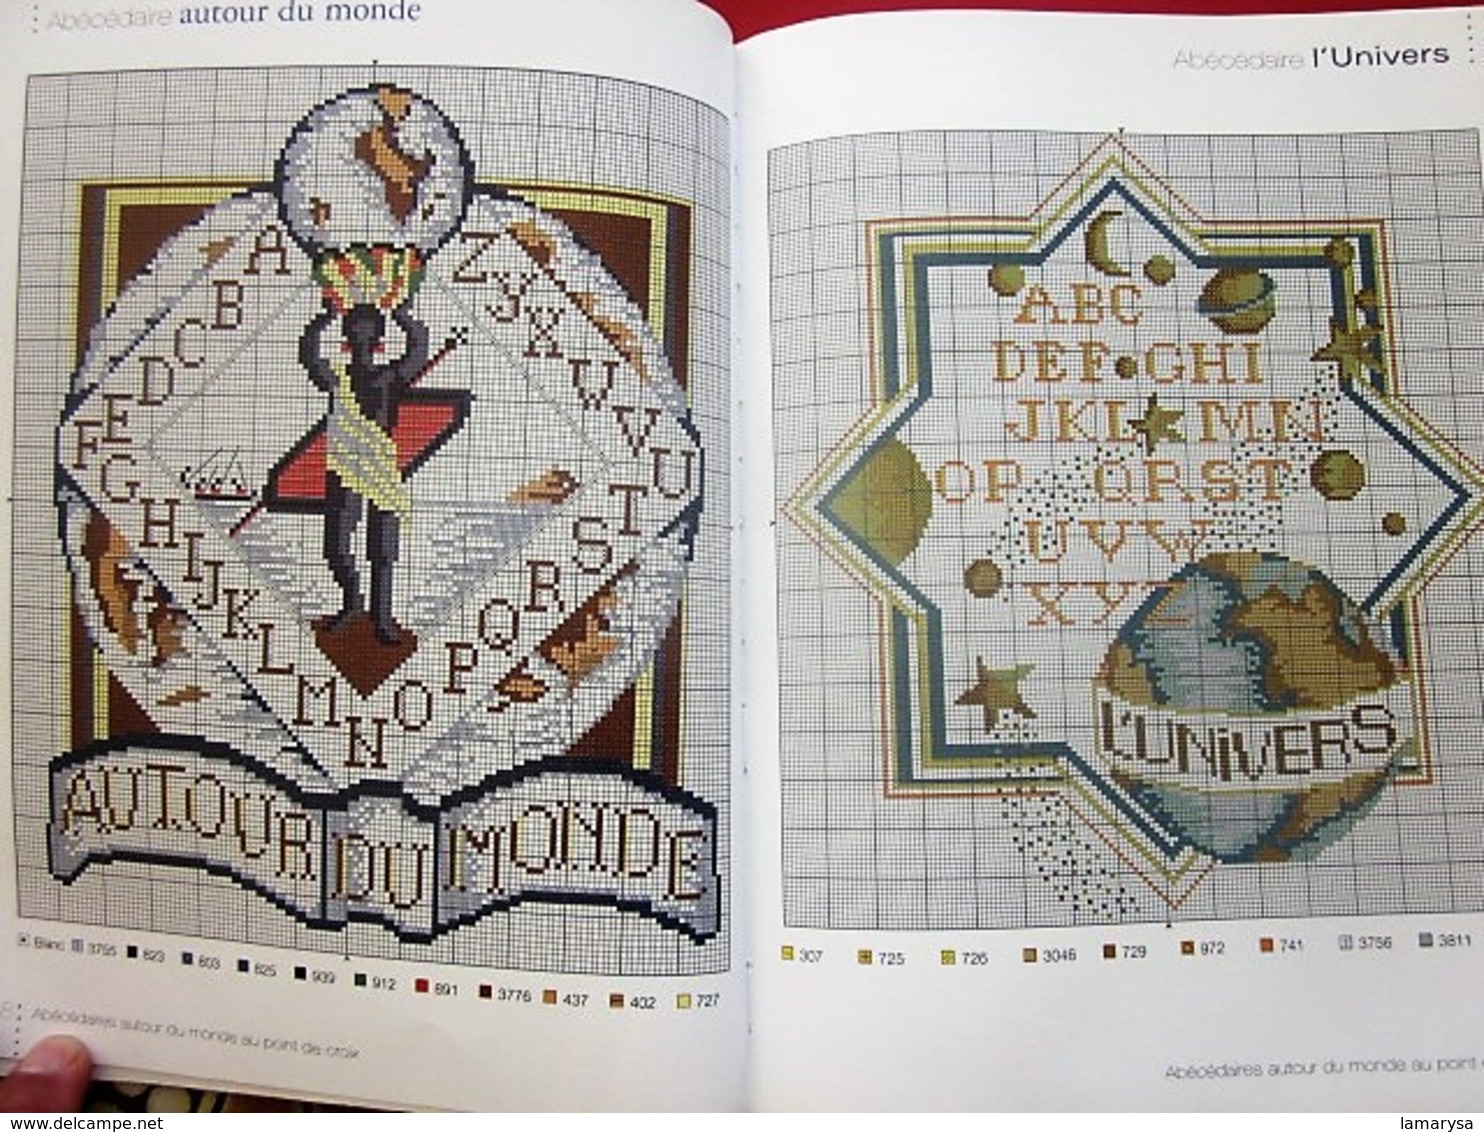 Abécédaire autour du monde
A Z
B Y
C X
D W
E V
F U
G T
H S
I R
J Q
K P
L O
M N
AUTOUR DU MONDE
Blanc 3755 823 803 825 939 912 891 3776 437 402 727
Abécédaires autour du monde au point de croix
Abécédaire l'Univers
ABC
DEF GHI
JKL MN
OP QRST
UVW
XYZ
L'UNiVERS
307 725 726 3046 729 972 741 3756 3811
Abécédaires autour du monde au point
www.delcampe.net
lamarysa